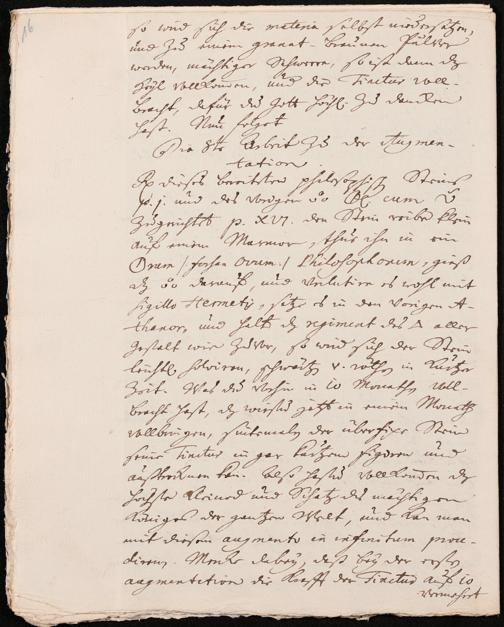 16
so wird sich die materia selbst niedersetzen,
und zu einem granat-braunen Pulver
werden, mächtiger schweren, so ist dann dz
vollkommen, und die Tinctur voll-
bracht, dafür du Gott höchl. zu dancken
hast. Nun folget
Die 8te Arbeit zu der Augmen-
tation.
Rp dieses bereiteten philosophisch Steins
p. j. und des vorigen cum
zugerichtet p. XVI. den Stein reibe klein
auf einem Marmor, thue ihn in ein
Ovum / forsan Ovum / Philosophorum, gieß
dz darauf, und verlutire es wohl mit
sigillo Hermetis, setz es in den vorigen A-
thanor, und halt dz regiment des △ aller
gestalt wie zuvor, so wird sich der Stein
leichtl. solviren, schwärtz u. röthen in kurtzer
Zeit. Was du vorhin in 10 Monathen voll-
bracht hast, dz wirstu jetzt in einem Monath
vollbringen, sintemahl der überfixe Stein
seine Tinctur in gar kurtzen figiren und
austrocknen kan. Also hastu vollkommen dz
höchste Kleinod und Schatz des mächtigen
Königes der gantzen Welt, und kan man
mit diesen augmento in infinitum proce-
diren. Mercke dabey, daß bey der ersten
augmentation die Krafft der Tinctur auf 10
vermehret